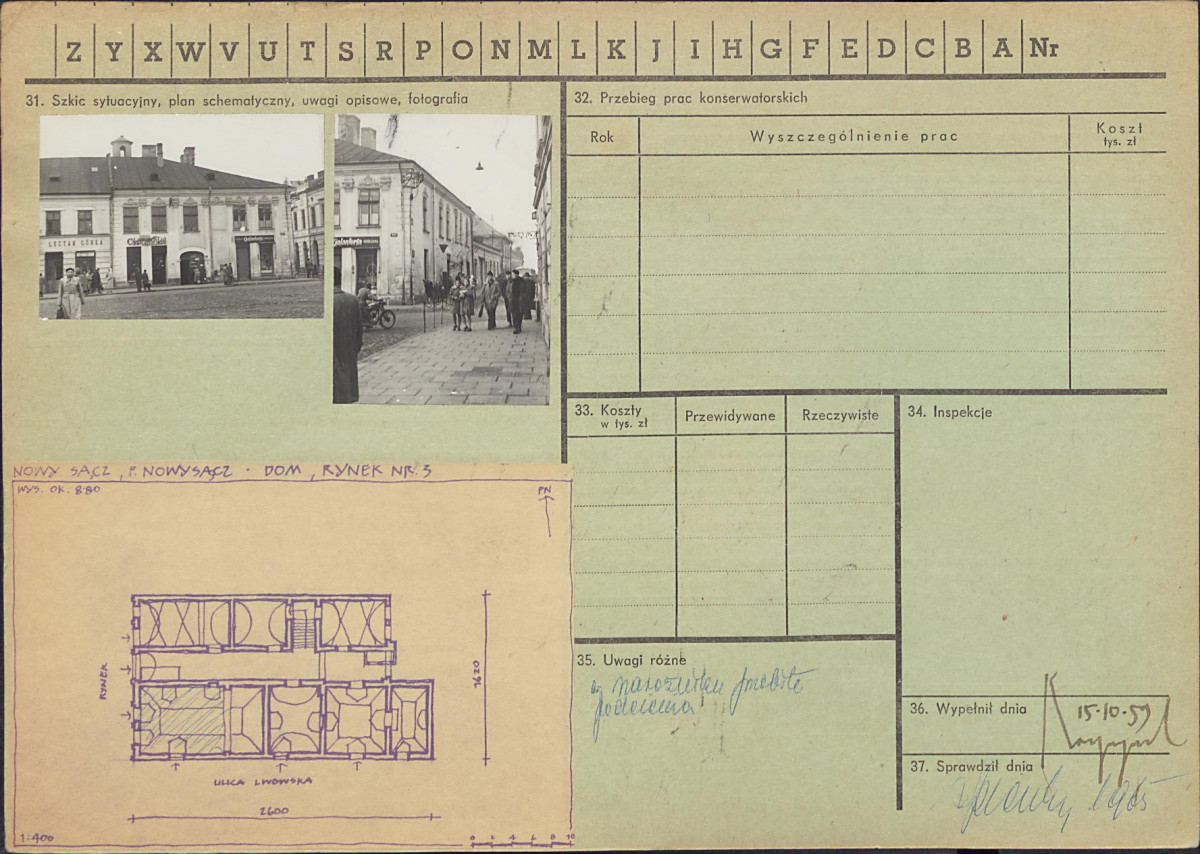 Z Y X W V U T S R P O N M L K J I H G F E D C B A Nr
31. Szkic sytuacyjny, plan schematyczny, uwagi opisowe, fotografia
LECTAR GÓREA
Galanteria
32. Przebieg prac konserwatorskich
Rok
Wyszczególnienie prac
Koszt
tys. zł
33. Koszty
w tys. zł
Przewidywane
Rzeczywiste
34. Inspekcje
NOWY SĄCZ, P. NOWY SĄCZ · DOM, RYNEK NR. 3
WYS. OK. 8·80
PN
RYNEK
1620
ULICA LWOWSKA
2600
1:400
0 2 4 6 8 10
35. Uwagi różne
w narożniku
podcienia
36. Wypełnił dnia
15·10·59
37. Sprawdził dnia
1965